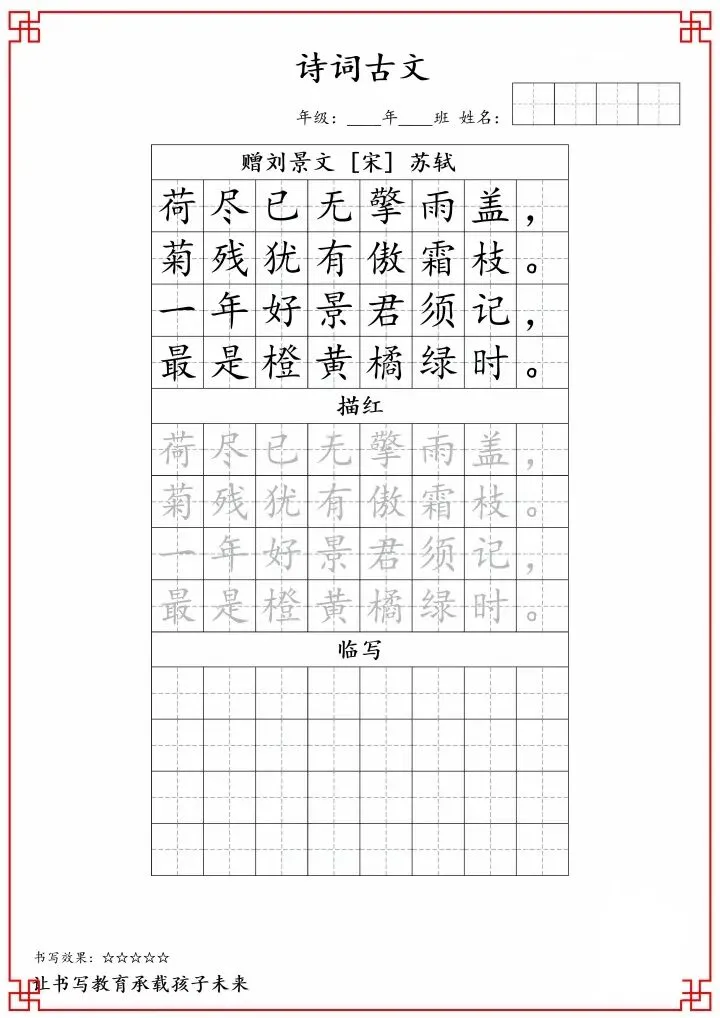 诗词古文
年级：____年____班 姓名：
赠刘景文［宋］苏轼
荷尽已无擎雨盖，
菊残犹有傲霜枝。
一年好景君须记，
最是橙黄橘绿时。
描红
荷尽已无擎雨盖，
菊残犹有傲霜枝。
一年好景君须记，
最是橙黄橘绿时。
临写
书写效果：☆☆☆☆☆
让书写教育承载孩子未来